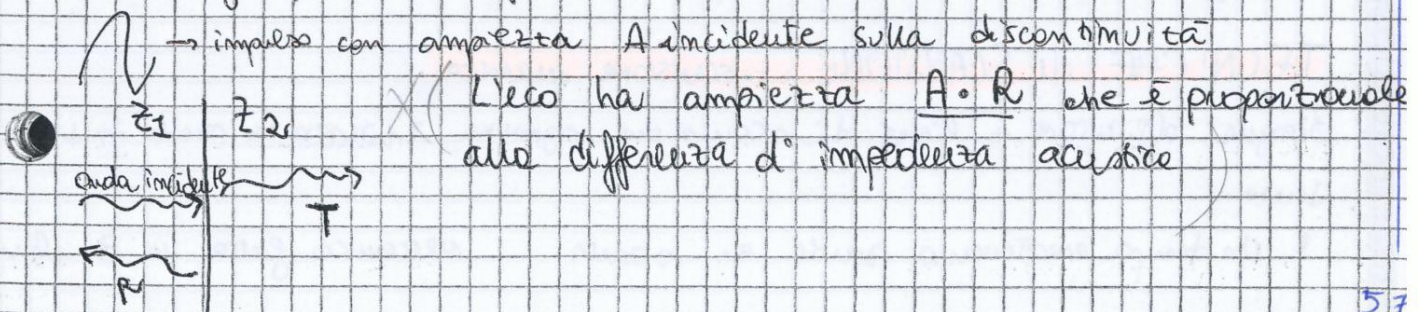 → impulso con ampiezza A incidente sulla discontinuità
L'eco ha ampiezza A • R che è proporzionale
alla differenza d' impedenza acustica
Z1 Z2
onda incidente
T
R
57